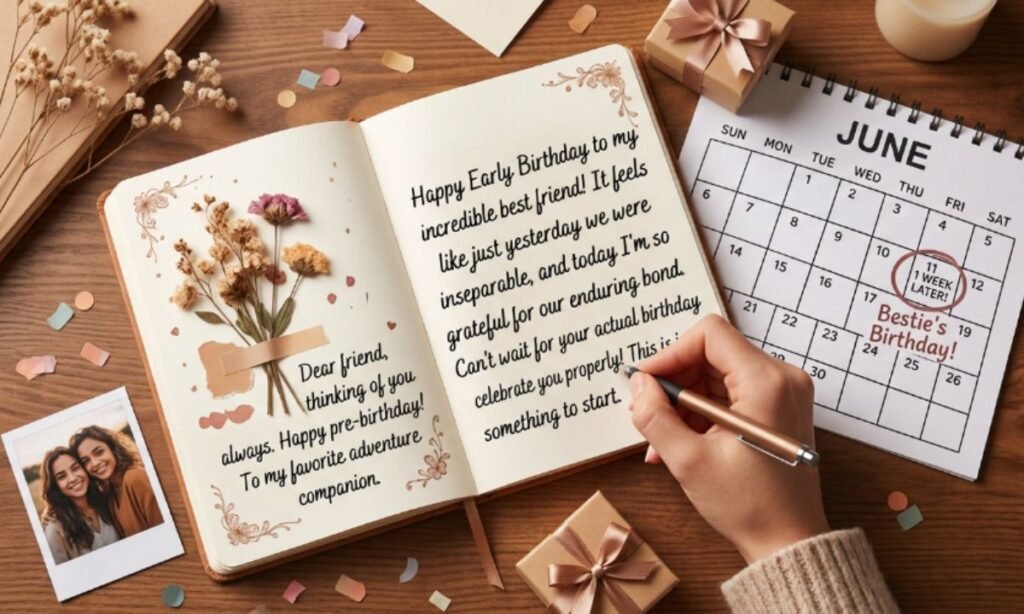 Happy Early Birthday to my
incredible best friend! It feels
like just yesterday we were
inseparable, and today I'm so
grateful for our enduring bond.
Can't wait for your actual birthday
celebrate you properly! This is
something to start.
Dear friend,
thinking of you
always. Happy pre-birthday!
To my favorite adventure
companion.
JUNE
SUN MON TUE WED THU FRI SAT
1 2 3 4 5
6 7 8 9 10 11 12
1 WEEK
LATER!
14 15 16 17 19
Bestie's
Birthday!
21 22 23 24 25 26
30